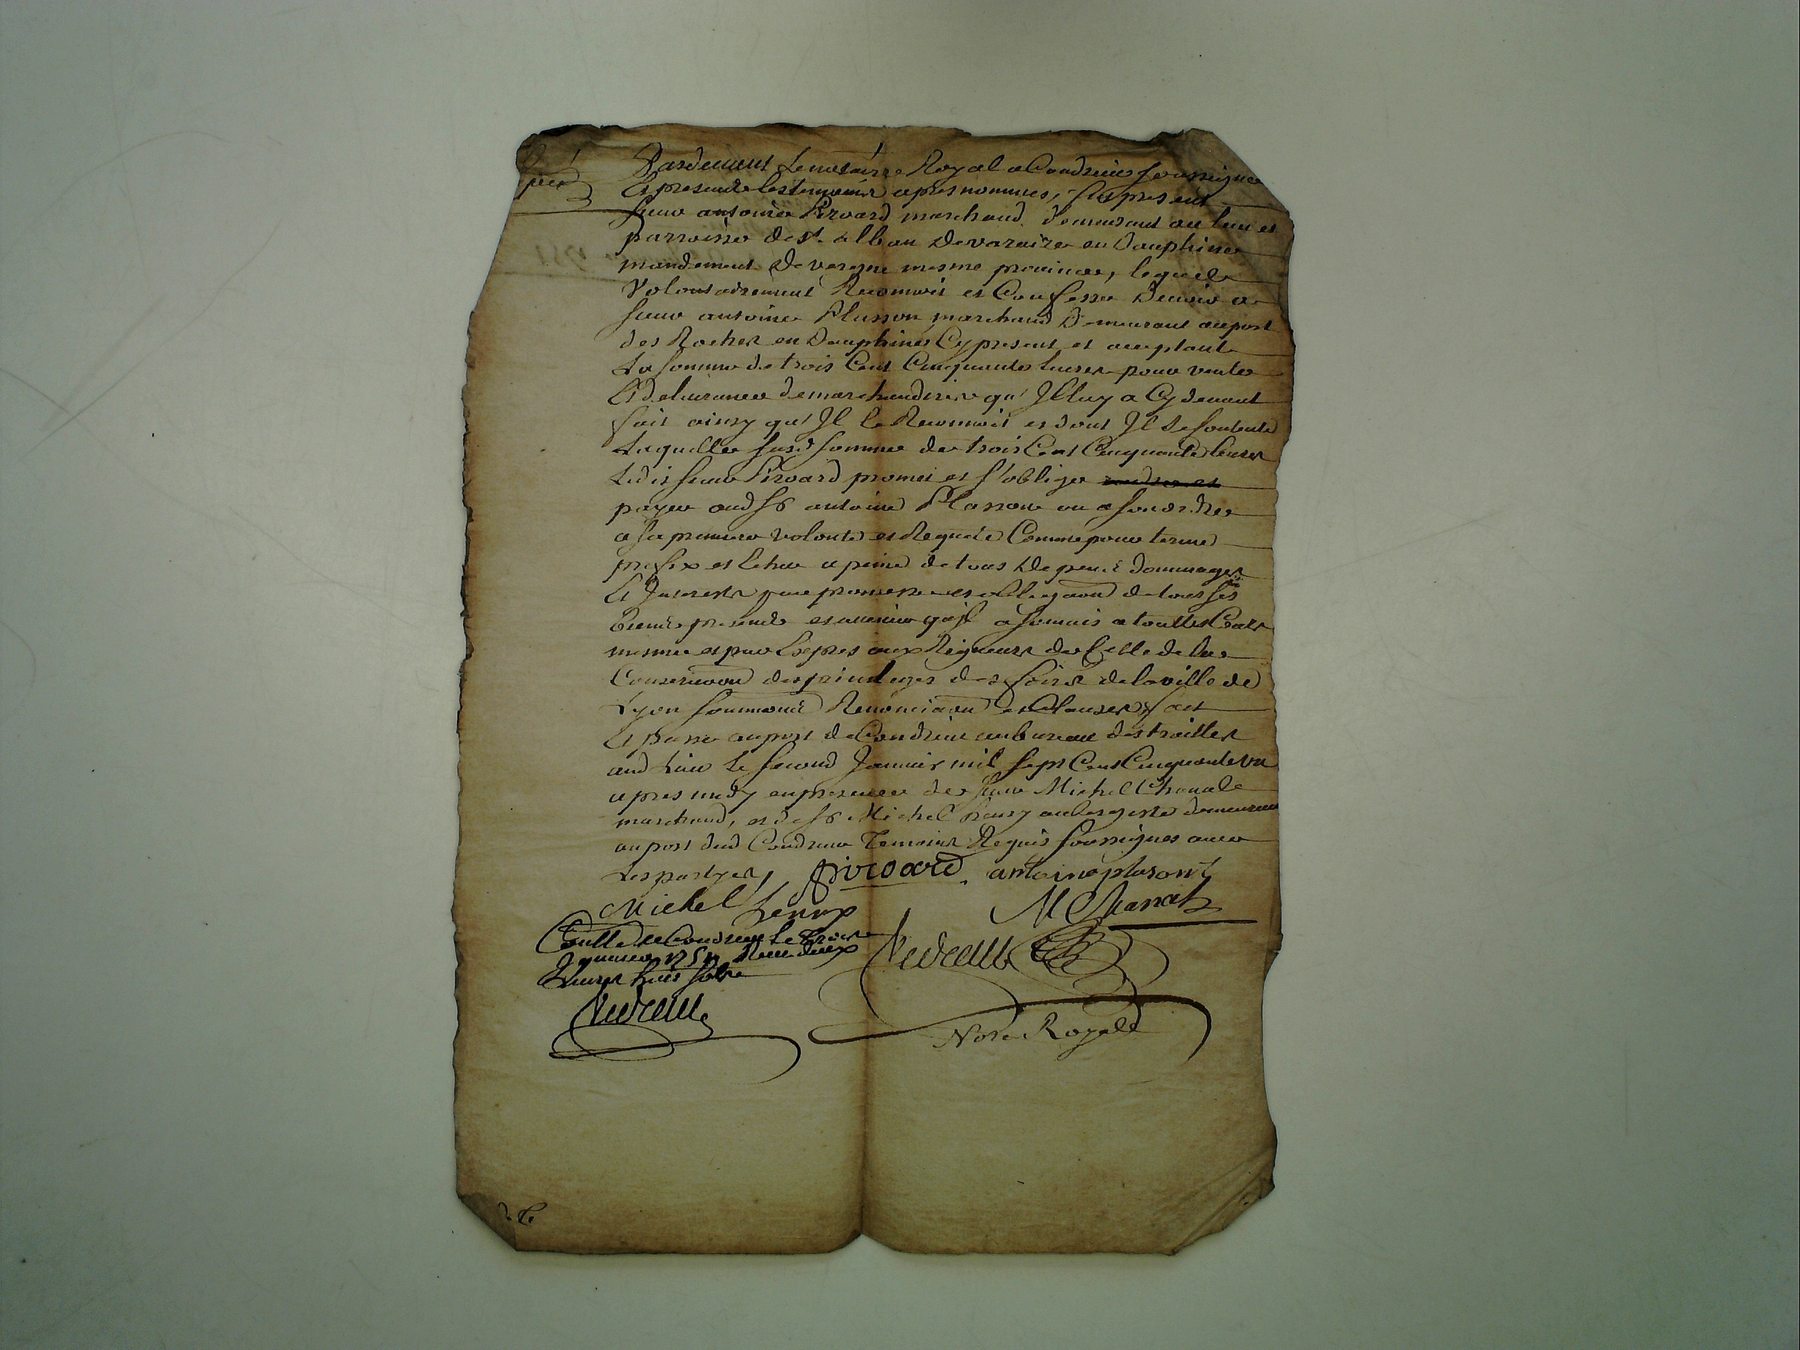 Pardevant Le notaire Royal a Condrieu soussigné
Et presents les temoins apres nommes, fut present
sieur antoine Pivard marchand demeurant au lieu et
parroisse de st alban De varaize en Dauphiné
mandement De mesme province, lequel
Volontairement Reconnoit et Confesse Devoir a
sieur antoine Plasson marchand Demeurant au port
des Roches en Dauphiné Cy present et acceptant
La somme de trois Cent Cinquante Livres pour vente
Et delivrance de marchandises qu'Il luy a Cy devant
fait ainsy qu'Il Le Reconnoit et dont Il Se Contente
Laquelle susd somme de trois Cent Cinquante Livres
Ledit sieur Pivard promet et s'oblige
payer aud sr antoine Plasson ou a son ordre
a sa premiere volonté et Requete Comme pour terme
prefix et Echu a peine de tous Depens dommages
Et Interets par promesse et obligaon de tous ses
biens presents et avenir qu'il a soumis a touttes Cours
mesme et par Expres aux Rigueurs de Celle de La
Conservaon des privileges des foires de la ville de
Lyon soumons Renonciaon et Clauses fait
Et passé au port de Condrieu au bureau des trailles
aud Lieu Le second Janvier mil sept Cent Cinquante un
apres midy en presence de sieur Michel
marchand, et de sr Michel aubergiste demeurant
au port dud Condrieu Temoins Requis soussignes avec
Les partyes, Pivoard antoine plasont
Michel
Conllé a Condrieu Le
Janvier 1751 Receu deux
Livres huit sols
Notre Royal